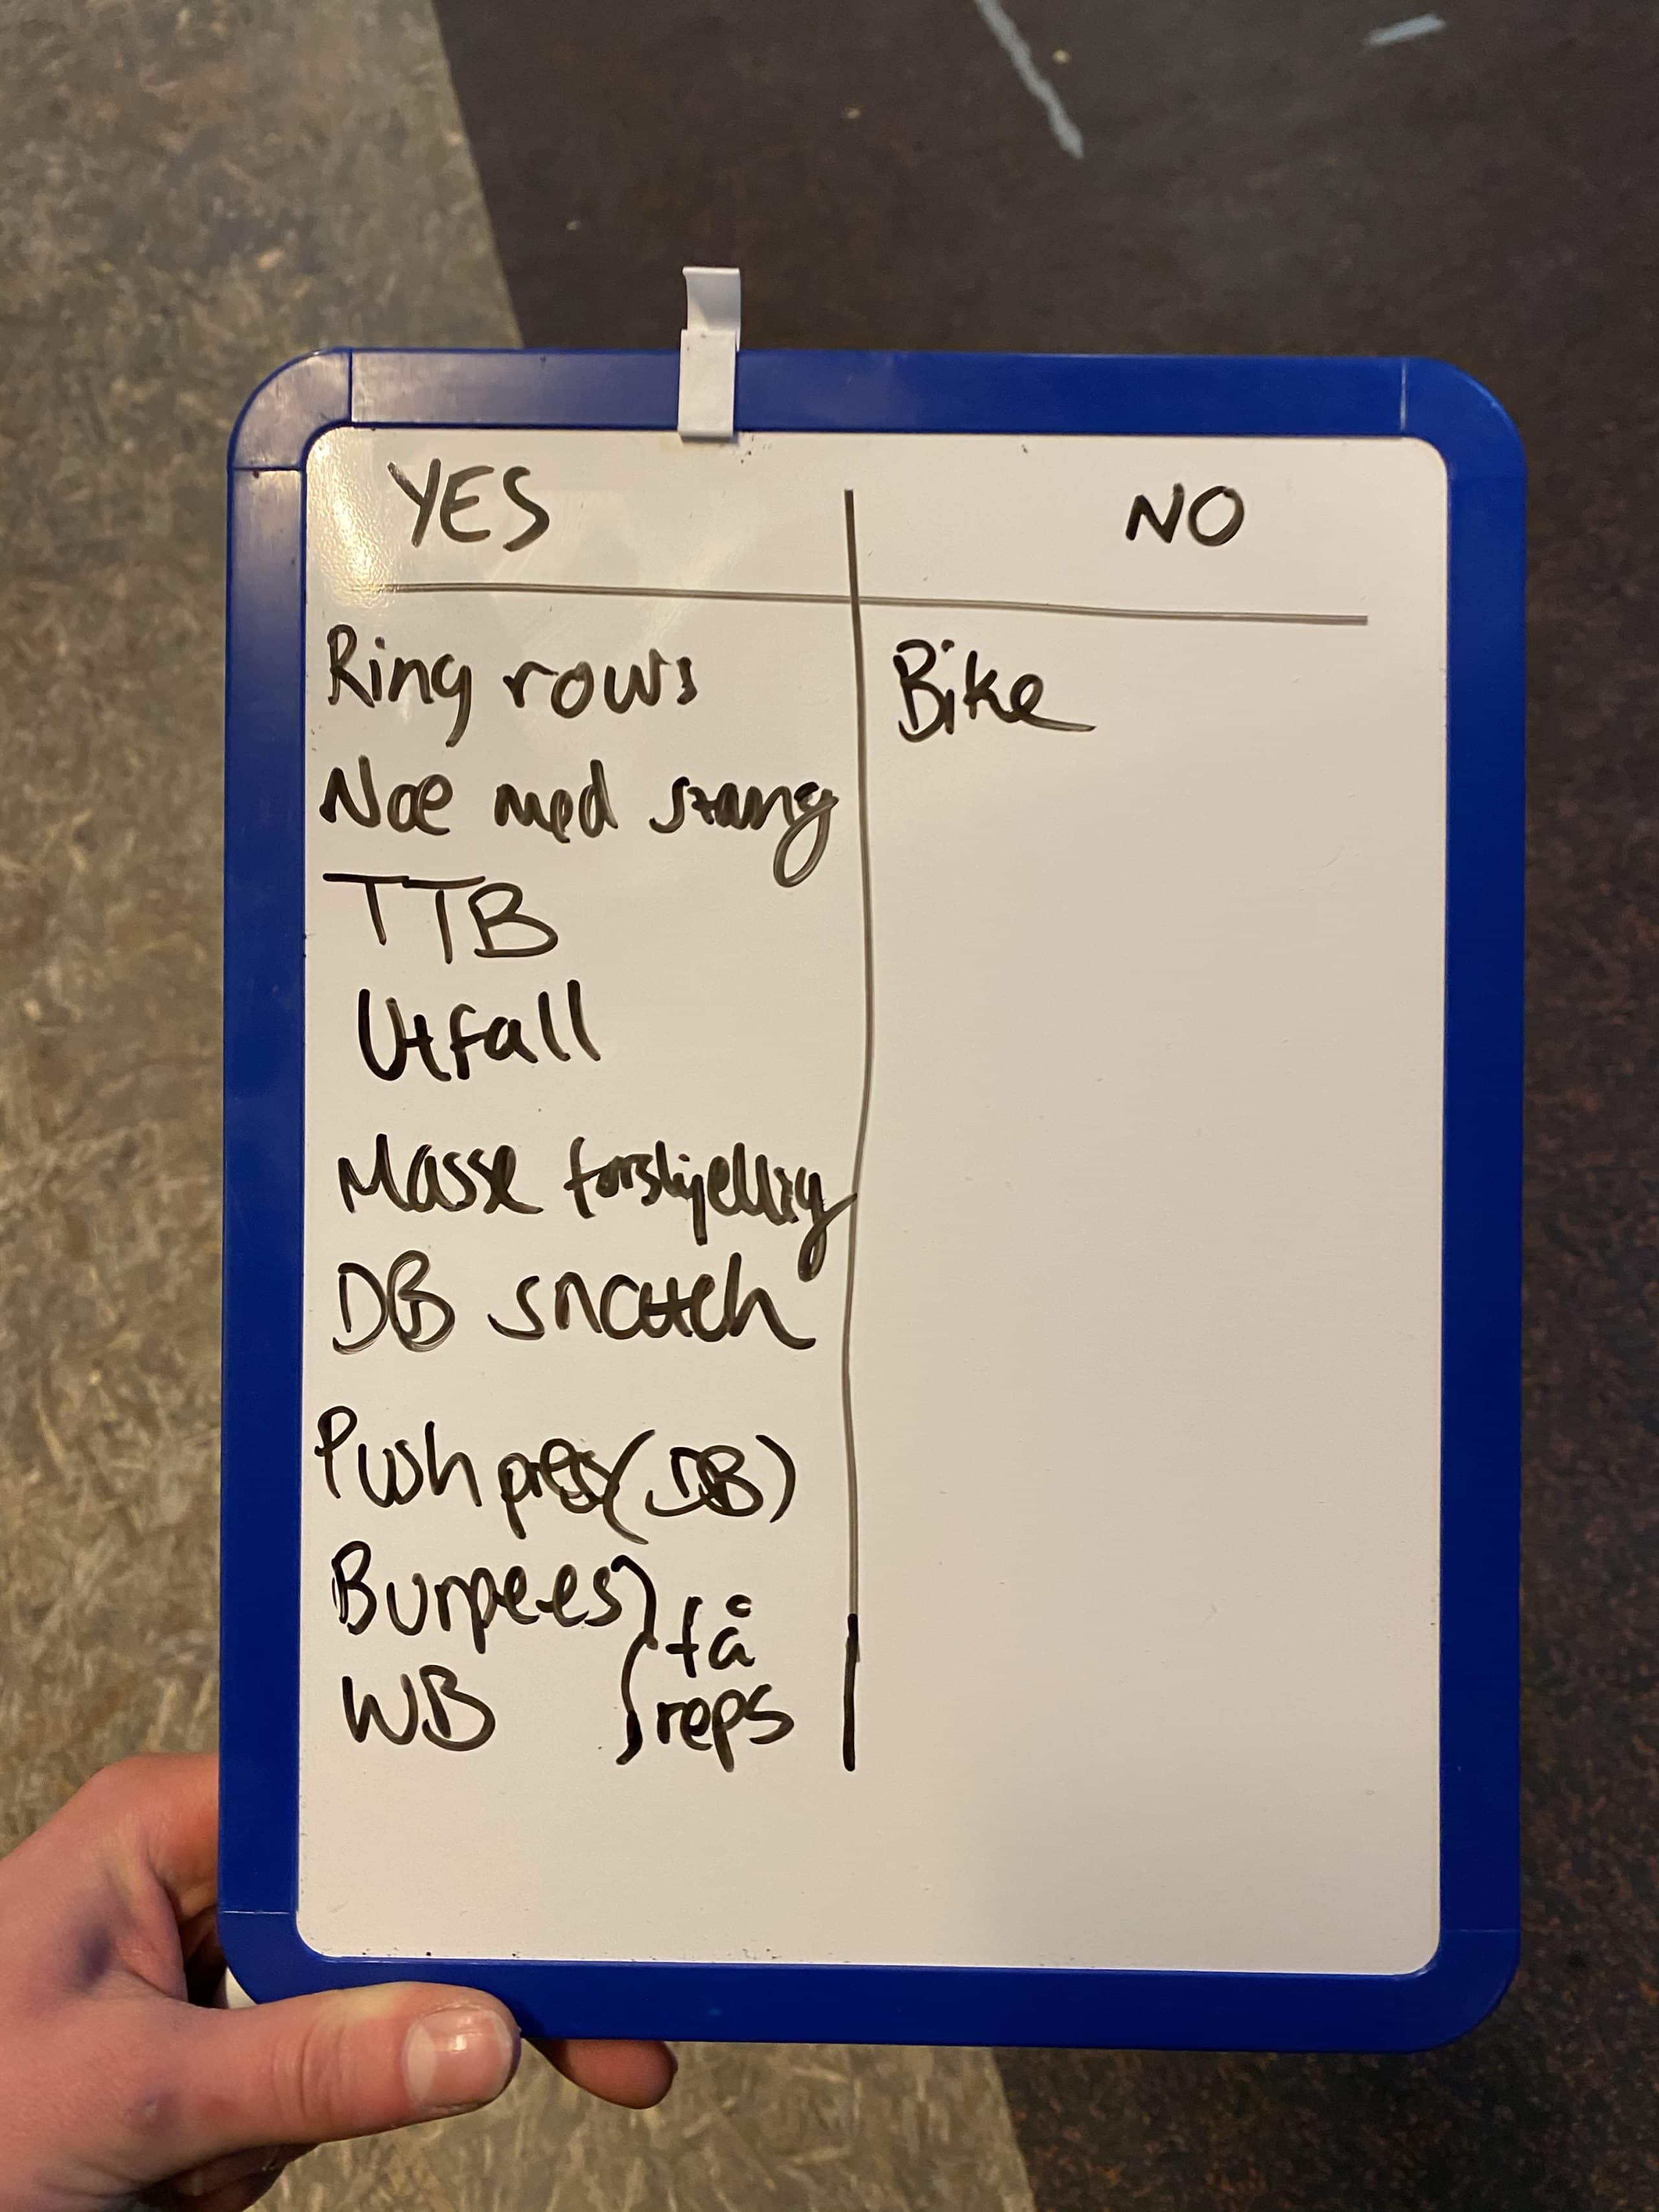 YES NO
Ring rows Bike
Noe med stang
TTB
Utfall
Masse forskjellig
DB snatch
Push press (DB)
Burpees
WB
få
reps